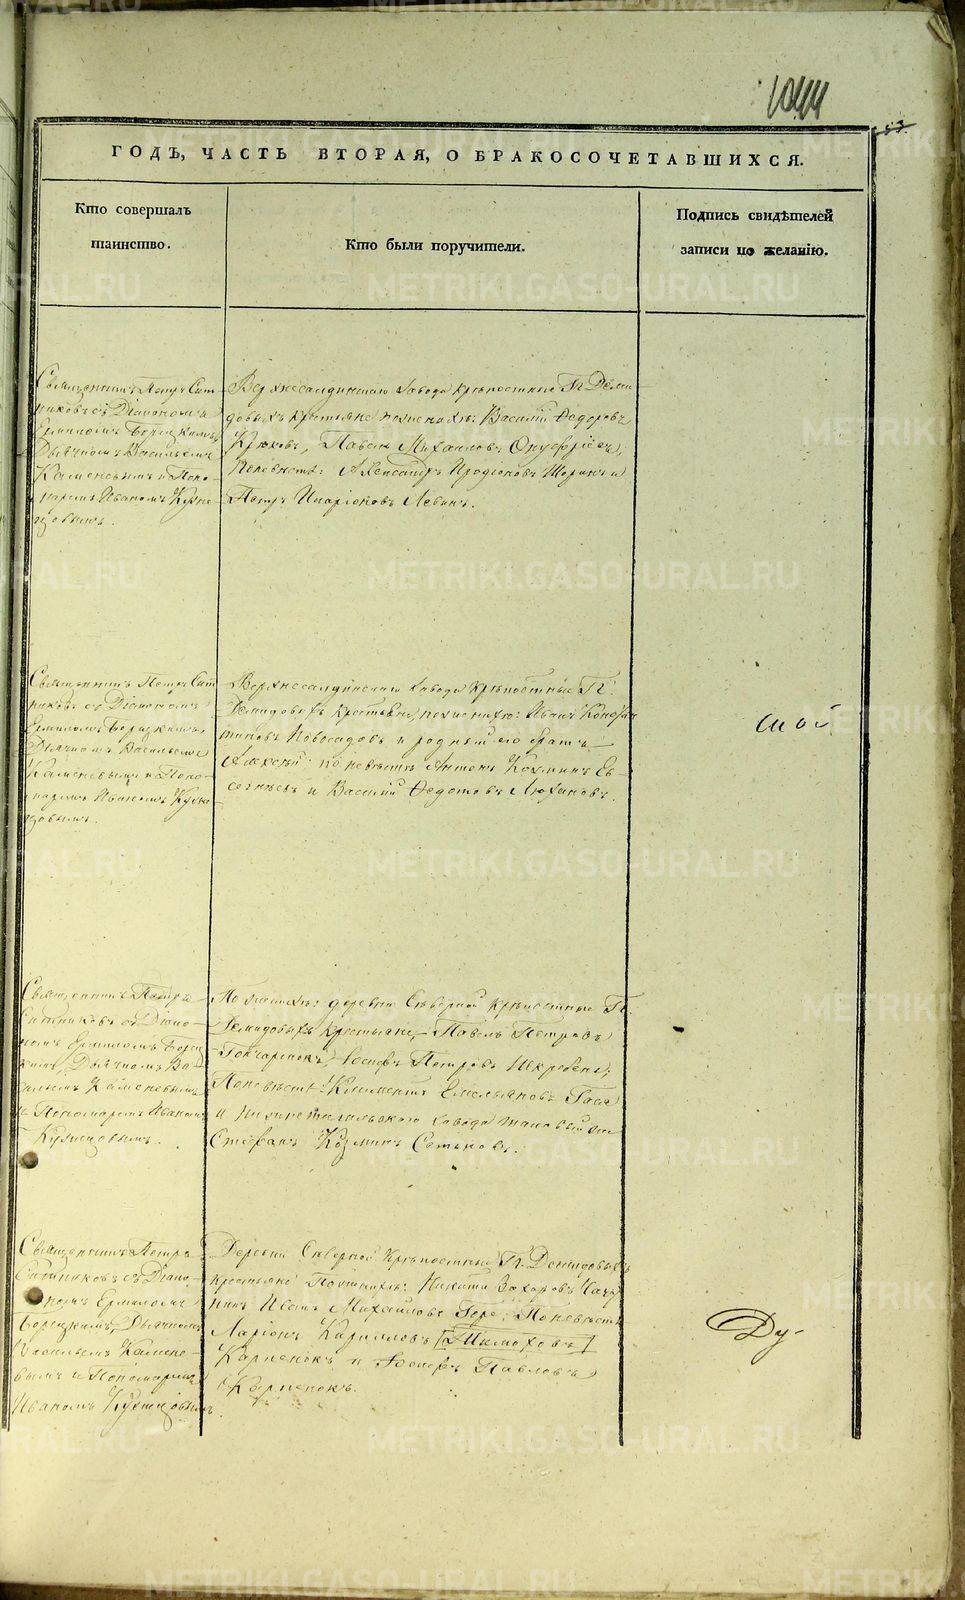 1044
53
ГОДЪ, ЧАСТЬ ВТОРАЯ, О БРАКОСОЧЕТАВШИХСЯ.
Кто совершалъ
таинство.
Кто были поручители.
Подпись свидѣтелей
записи по желанію.
Священникъ Петръ Сит-
никовъ съ Діакономъ
Ермиломъ Борецкимъ,
Дьячкомъ Васильемъ
Каменевымъ и Поно-
маремъ Иваномъ Кузне-
цовымъ.
Верхнесалдинскаго завода крѣпостные Гг. Деми-
довыхъ крестьяне по женихѣ: Василій Федоровъ
Крюковъ, Павелъ Михайловъ Онуфріевъ,
по невѣстѣ: Александръ Иродіоновъ Шоринъ и
Петръ Иларіоновъ Левинъ.
Священникъ Петръ Сит-
никовъ съ Діакономъ
Ермиломъ Борецкимъ,
Дьячкомъ Васильемъ
Каменевымъ и Поно-
маремъ Иваномъ Кузне-
цовымъ.
Верхнесалдинскаго завода крѣпостные Гг.
Демидовыхъ крестьяне, по женихѣ: Иванъ Констан-
тиновъ Новосадовъ и родный его братъ
Алексѣй: по невѣстѣ Антонъ Козминъ Ев-
сегнѣевъ и Василій Федотовъ Люхановъ.
шой
Священникъ Петръ
Ситниковъ съ Діако-
номъ Ермиломъ Борец-
кимъ, Дьячкомъ Ва-
сильемъ Каменевымъ
и Пономаремъ Иваномъ
Кузнецовымъ.
По женихѣ: деревни Сѣверной крѣпостные Гг.
Демидовыхъ крестьяне, Павелъ Петровъ
Гончаренокъ, Іосифъ Петровъ Шкребень,
По невѣстѣ Климентъ Емельяновъ
и Нижнетагильскаго завода таковый же
Стефанъ Козминъ
Священникъ Петръ
Ситниковъ съ Діако-
номъ Ермиломъ
Борецкимъ, Дьячкомъ
Васильемъ Камене-
вымъ и Пономаремъ
Иваномъ Кузнецовымъ.
Деревни Сѣверной крѣпостные Гг. Демидовыхъ
крестьяне По женихѣ: Никита Захаровъ
Иванъ Михайловъ По невѣстѣ
Ларіонъ Кариловъ [Тимоховъ]
Карпенокъ и Іосифъ Павловъ
Карпенокъ.
Ду-
METRIKI.GASO-URAL.RU